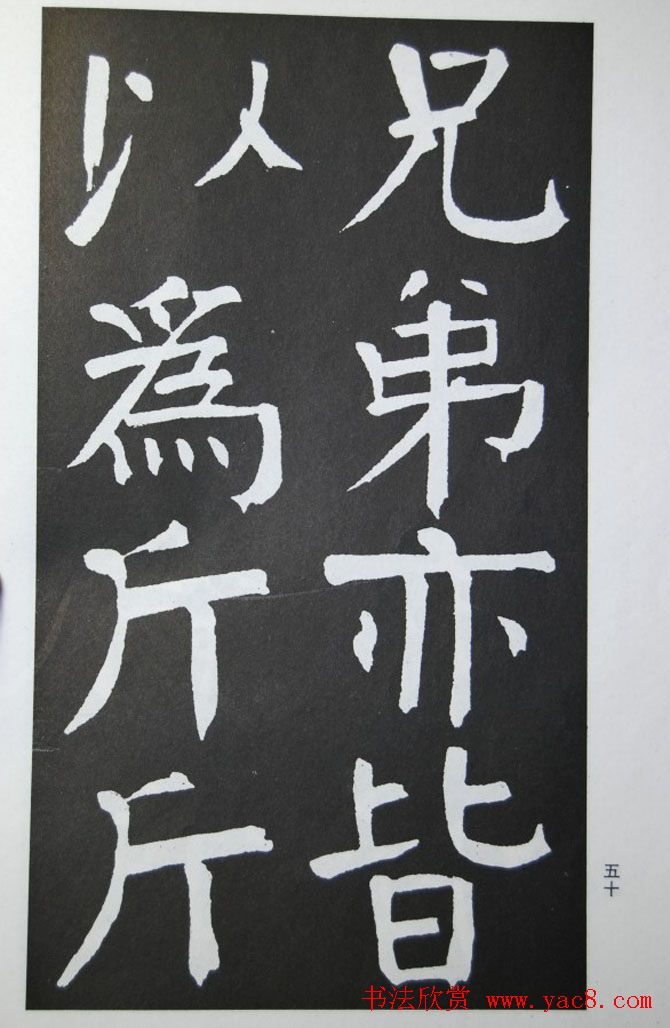 兄弟亦皆
以為斤斤
五十
书法欣赏 www.yac8.com